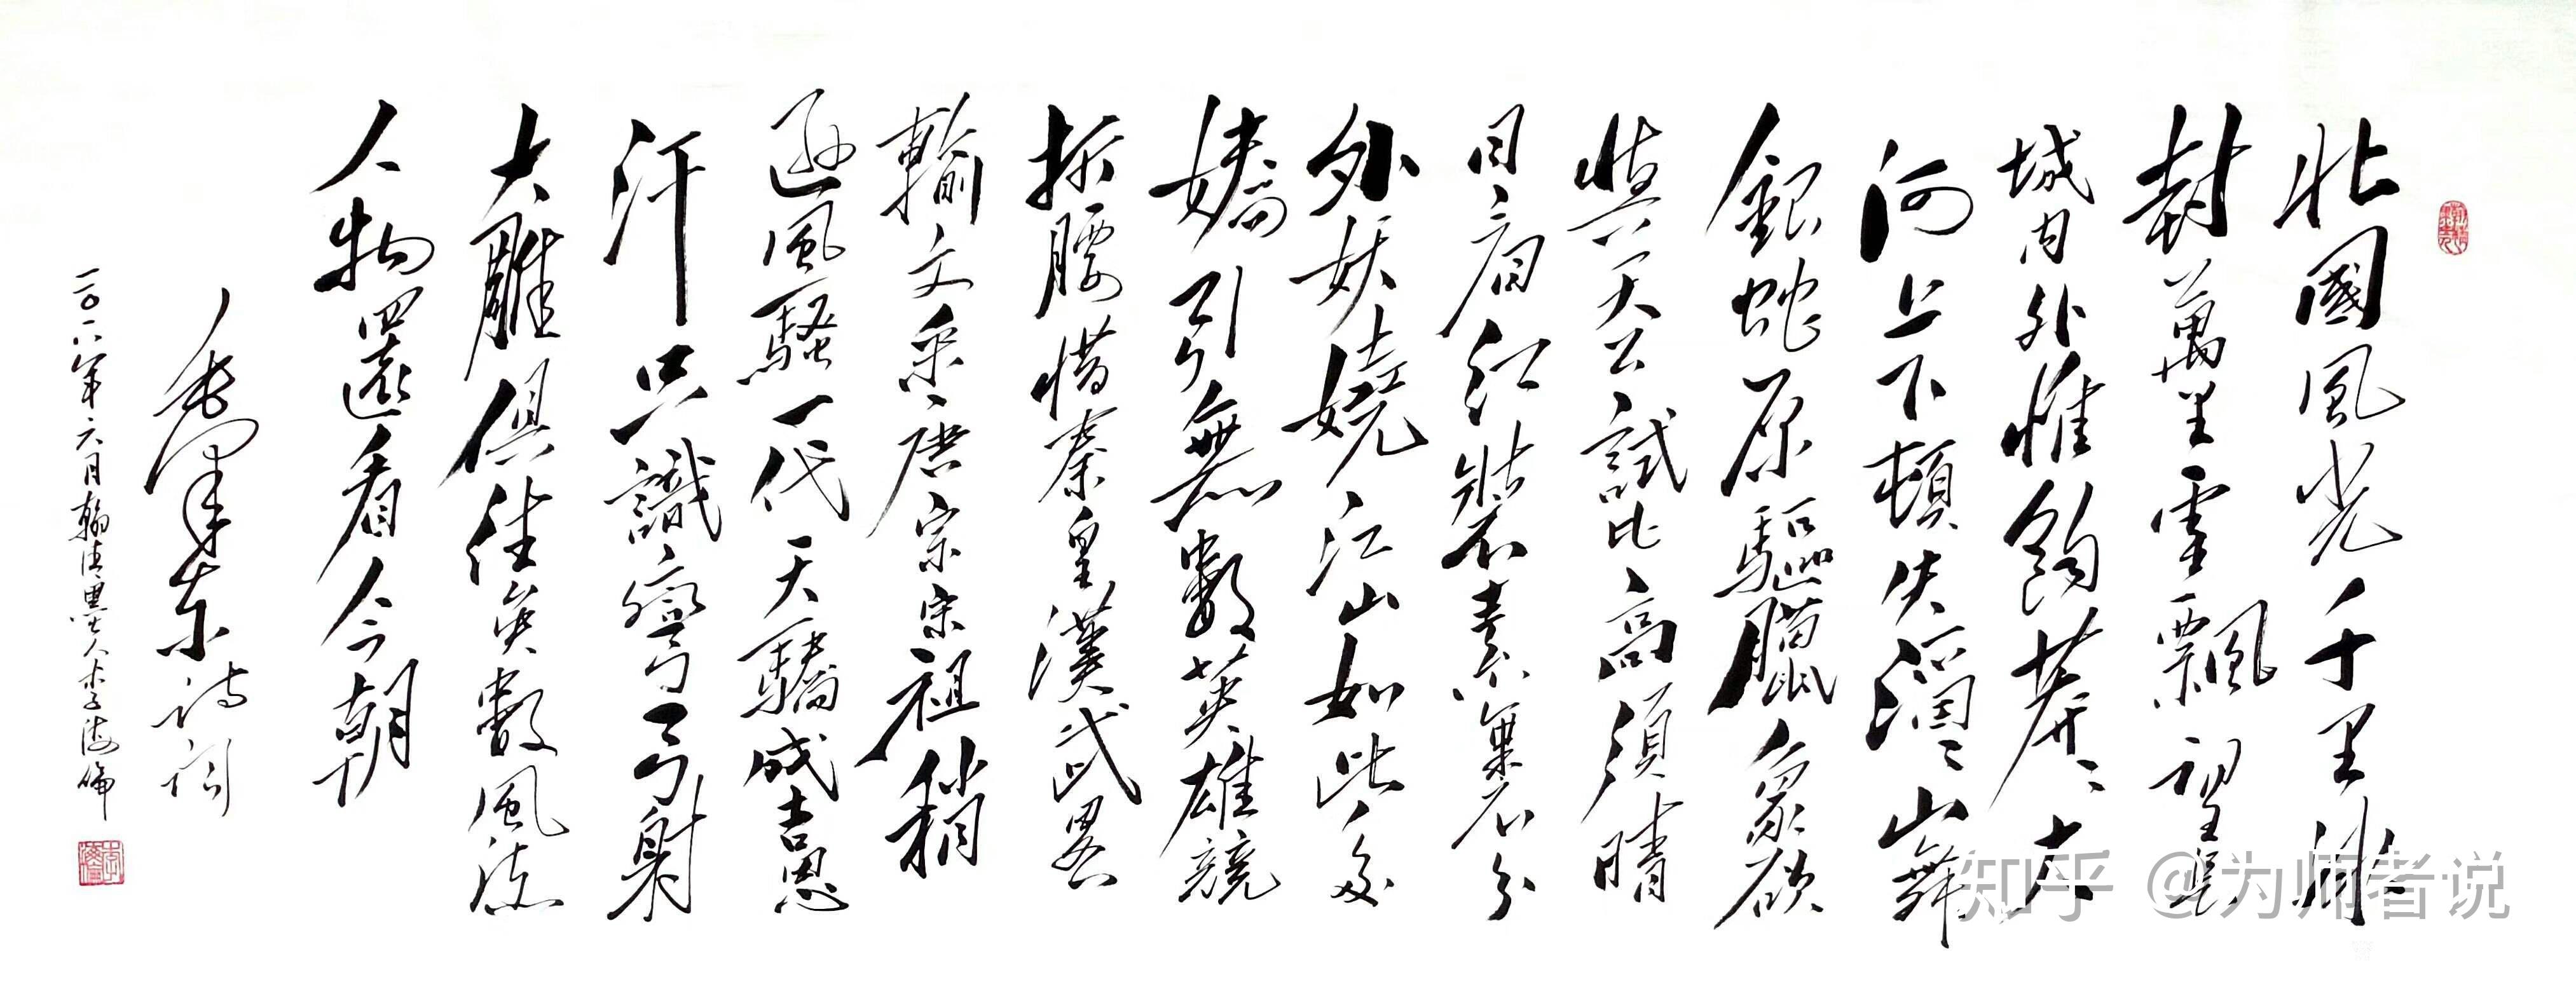 北國風光千里冰
封萬里雪飄望長
城内外惟餘莽〻大
河上下頓失滔〻山舞
銀蛇原驅臘象欲
與天公試比高須晴
日看紅裝素裹分
外妖嬈江山如此多
嬌引無數英雄競
折腰惜秦皇漢武畧
輸文采唐宗宋祖稍
遜風騷一代天驕成吉思
汗只識彎弓射
大雕俱往矣數風流
人物還看今朝
毛澤東詩詞
二〇一八年六月翰清墨人李海倫
知乎 @为师者说